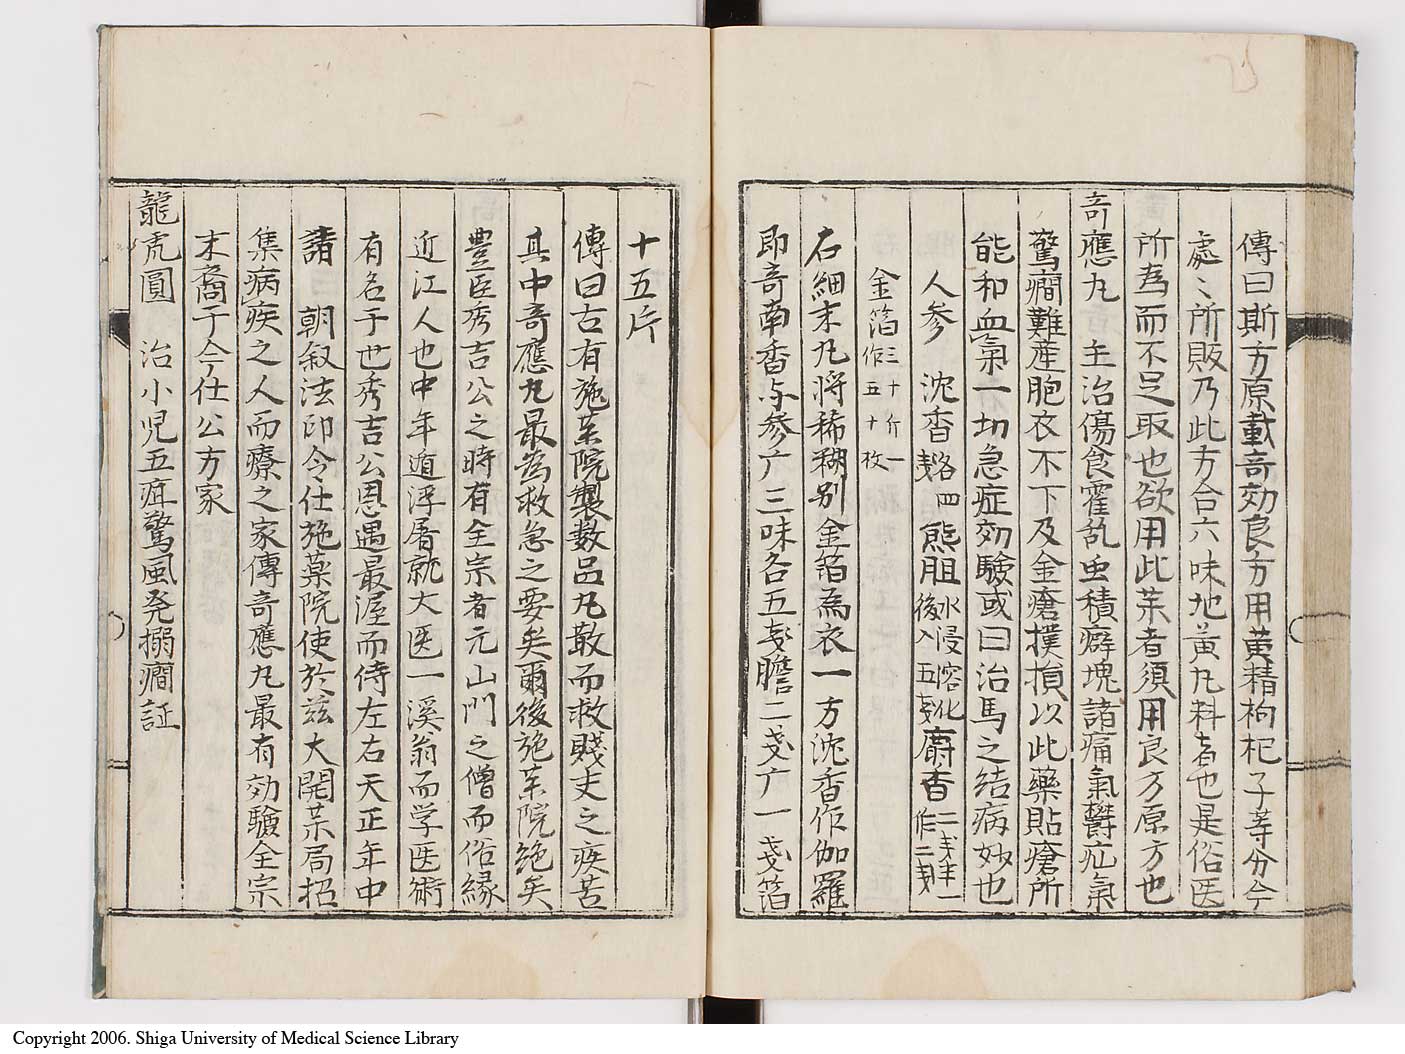 傳曰斯方原載竒効良方用黄精枸杞子等分今
處〻所販乃此方合六味地黄丸料者也是俗医
所為而不足取也欲用此茱者須用良方原方也
竒應丸 主治傷食霍乱虫積癖塊諸痛氣欝疝氣
驚癇難産胞衣不下及金瘡撲損以此藥貼瘡所
能和血氣一切急症効驗或曰治馬之結病妙也
人参 沈香各四戔 熊胆水浸溶化後入五戔 麝香二戔半一作二戔
金箔三十片一作五十枚
右細末丸將稀糊别金箔為衣一方沈香作伽羅
即竒南香与參广三味各五戔膽二戔广一戔箔
十五片
傳曰古有施茱院製数品丸散而救賤丈之疾苦
其中竒應丸最為救急之要矣爾後施茱院絶矣
豊臣秀吉公之時有全宗者元山門之僧而俗縁
近江人也中年遁浮屠就大医一溪翁而学医術
有名于世秀吉公恩遇最渥而侍左右天正年中
諸 朝叙法印令仕施薬院使於兹大開茱局招
集病疾之人而療之家傳竒應丸最有効驗全宗
末裔于今仕公方家
龍虎圓 治小児五疳驚風発搦癇証